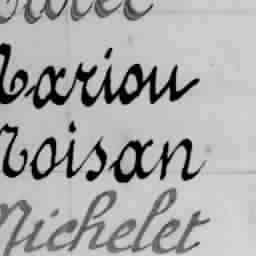 Mariou
Moisan
Michelet